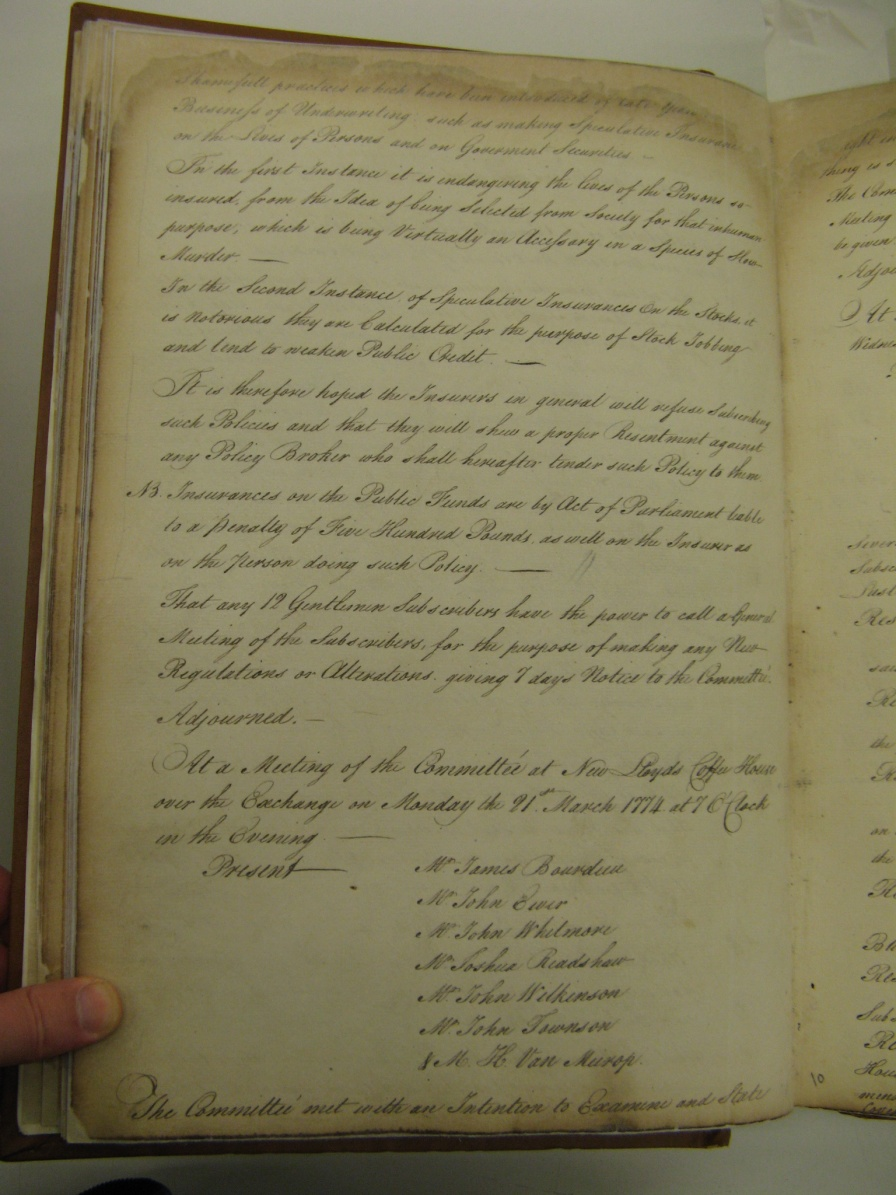 Shamefull practices which have been introduced of late Years
Business of Underwriting, such as making Speculative Insurances
on the Lives of Persons and on Goverment Securities —
In the first Instance it is endangering the lives of the Persons so
insured, from the Idea of being Selected from Society for that inhuman
purpose, which is being Virtually an Accessary in a Species of Slow
Murder —
In the Second Instance, of Speculative Insurances On the Stocks, it
is notorious they are Calculated for the purpose of Stock Jobbing
and tend to weaken Public Credit. —
It is therefore hoped the Insurers in general will refuse Subscribing
such Policies and that they will shew a proper Resentment against
any Policy Broker who shall hereafter tender such Policy to them.
NB. Insurances on the Public Funds are by Act of Parliament liable
to a Penalty of Five Hundred Pounds, as well on the Insurer as
on the Person doing such Policy. —
That any 12 Gentlemen Subscribers have the power to call a General
Meeting of the Subscribers, for the purpose of making any New
Regulations or Alterations, giving 7 days Notice to the Committeé.
Adjourned. —
At a Meeting of the Committeé at New Lloyds Coffee House
over the Exchange on Monday the 21st March 1774 at 7 O'Clock
in the Evening —
Present — Mr James Bourdieu
Mr John Ewer
Mr John Whitmore
Mr Joshua Readshaw
Mr John Wilkinson
Mr John Townson
& M. H. Van Mierop.
The Committeé met with an Intention to Examine and State
thing is
The Com
Meeting
be given
Adjou
At
Wednes
Subsc
Res
the
on
the
Res
Subs
Hous
10